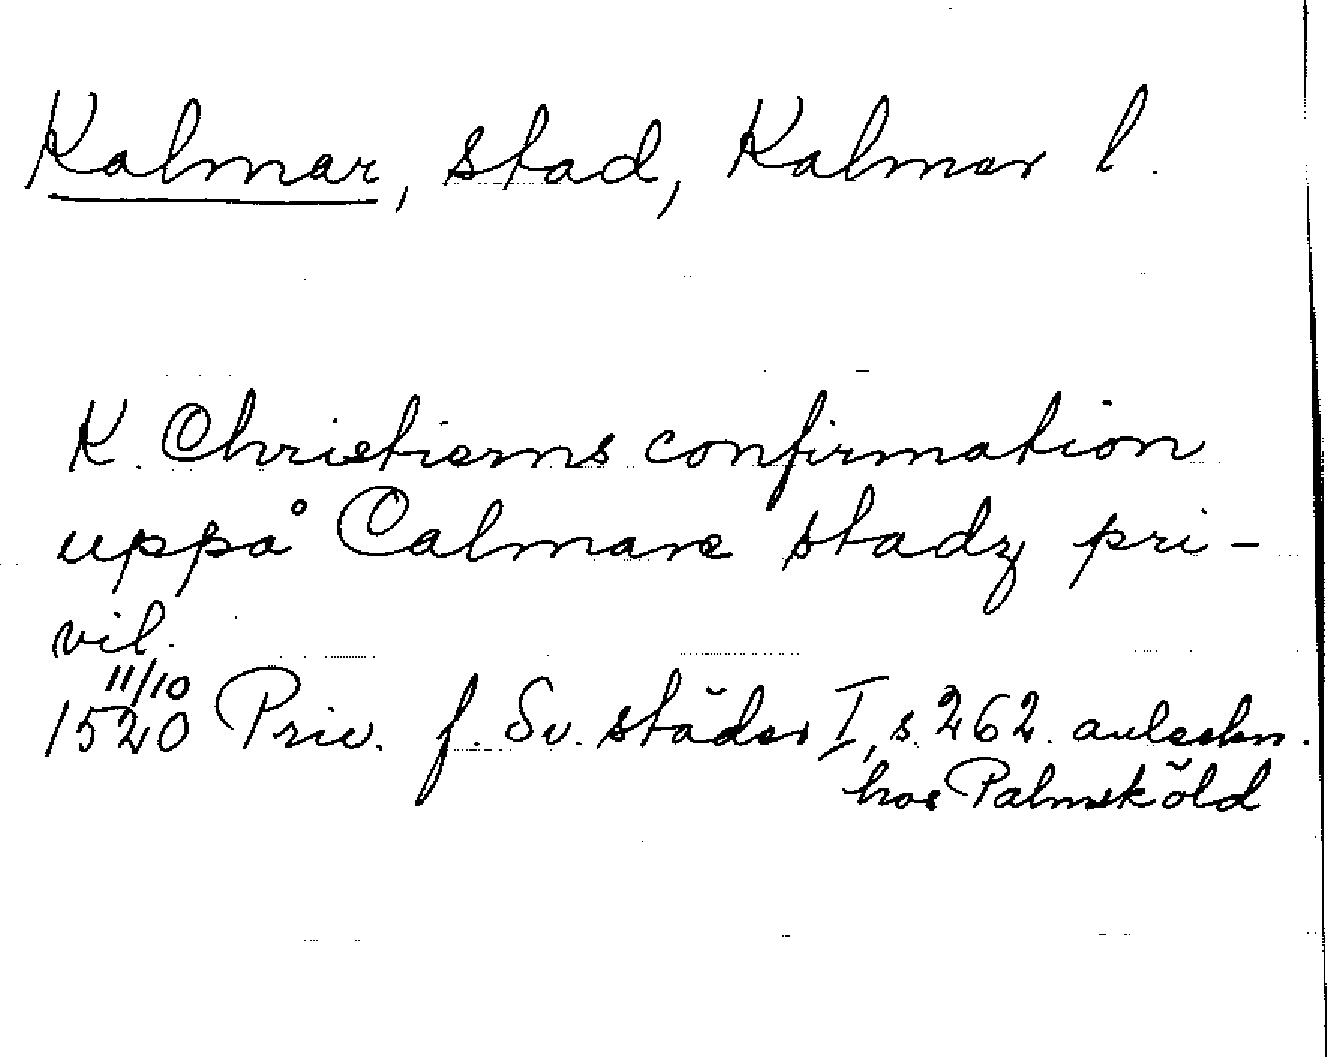 Kalmar, stad, Kalmar l.
K. Christierns confirmation
uppå Calmare stadz pri-
vil.
11/10
1520 Priv. f. Sv. städer I, s. 262. anteckn.
hos Palmsköld